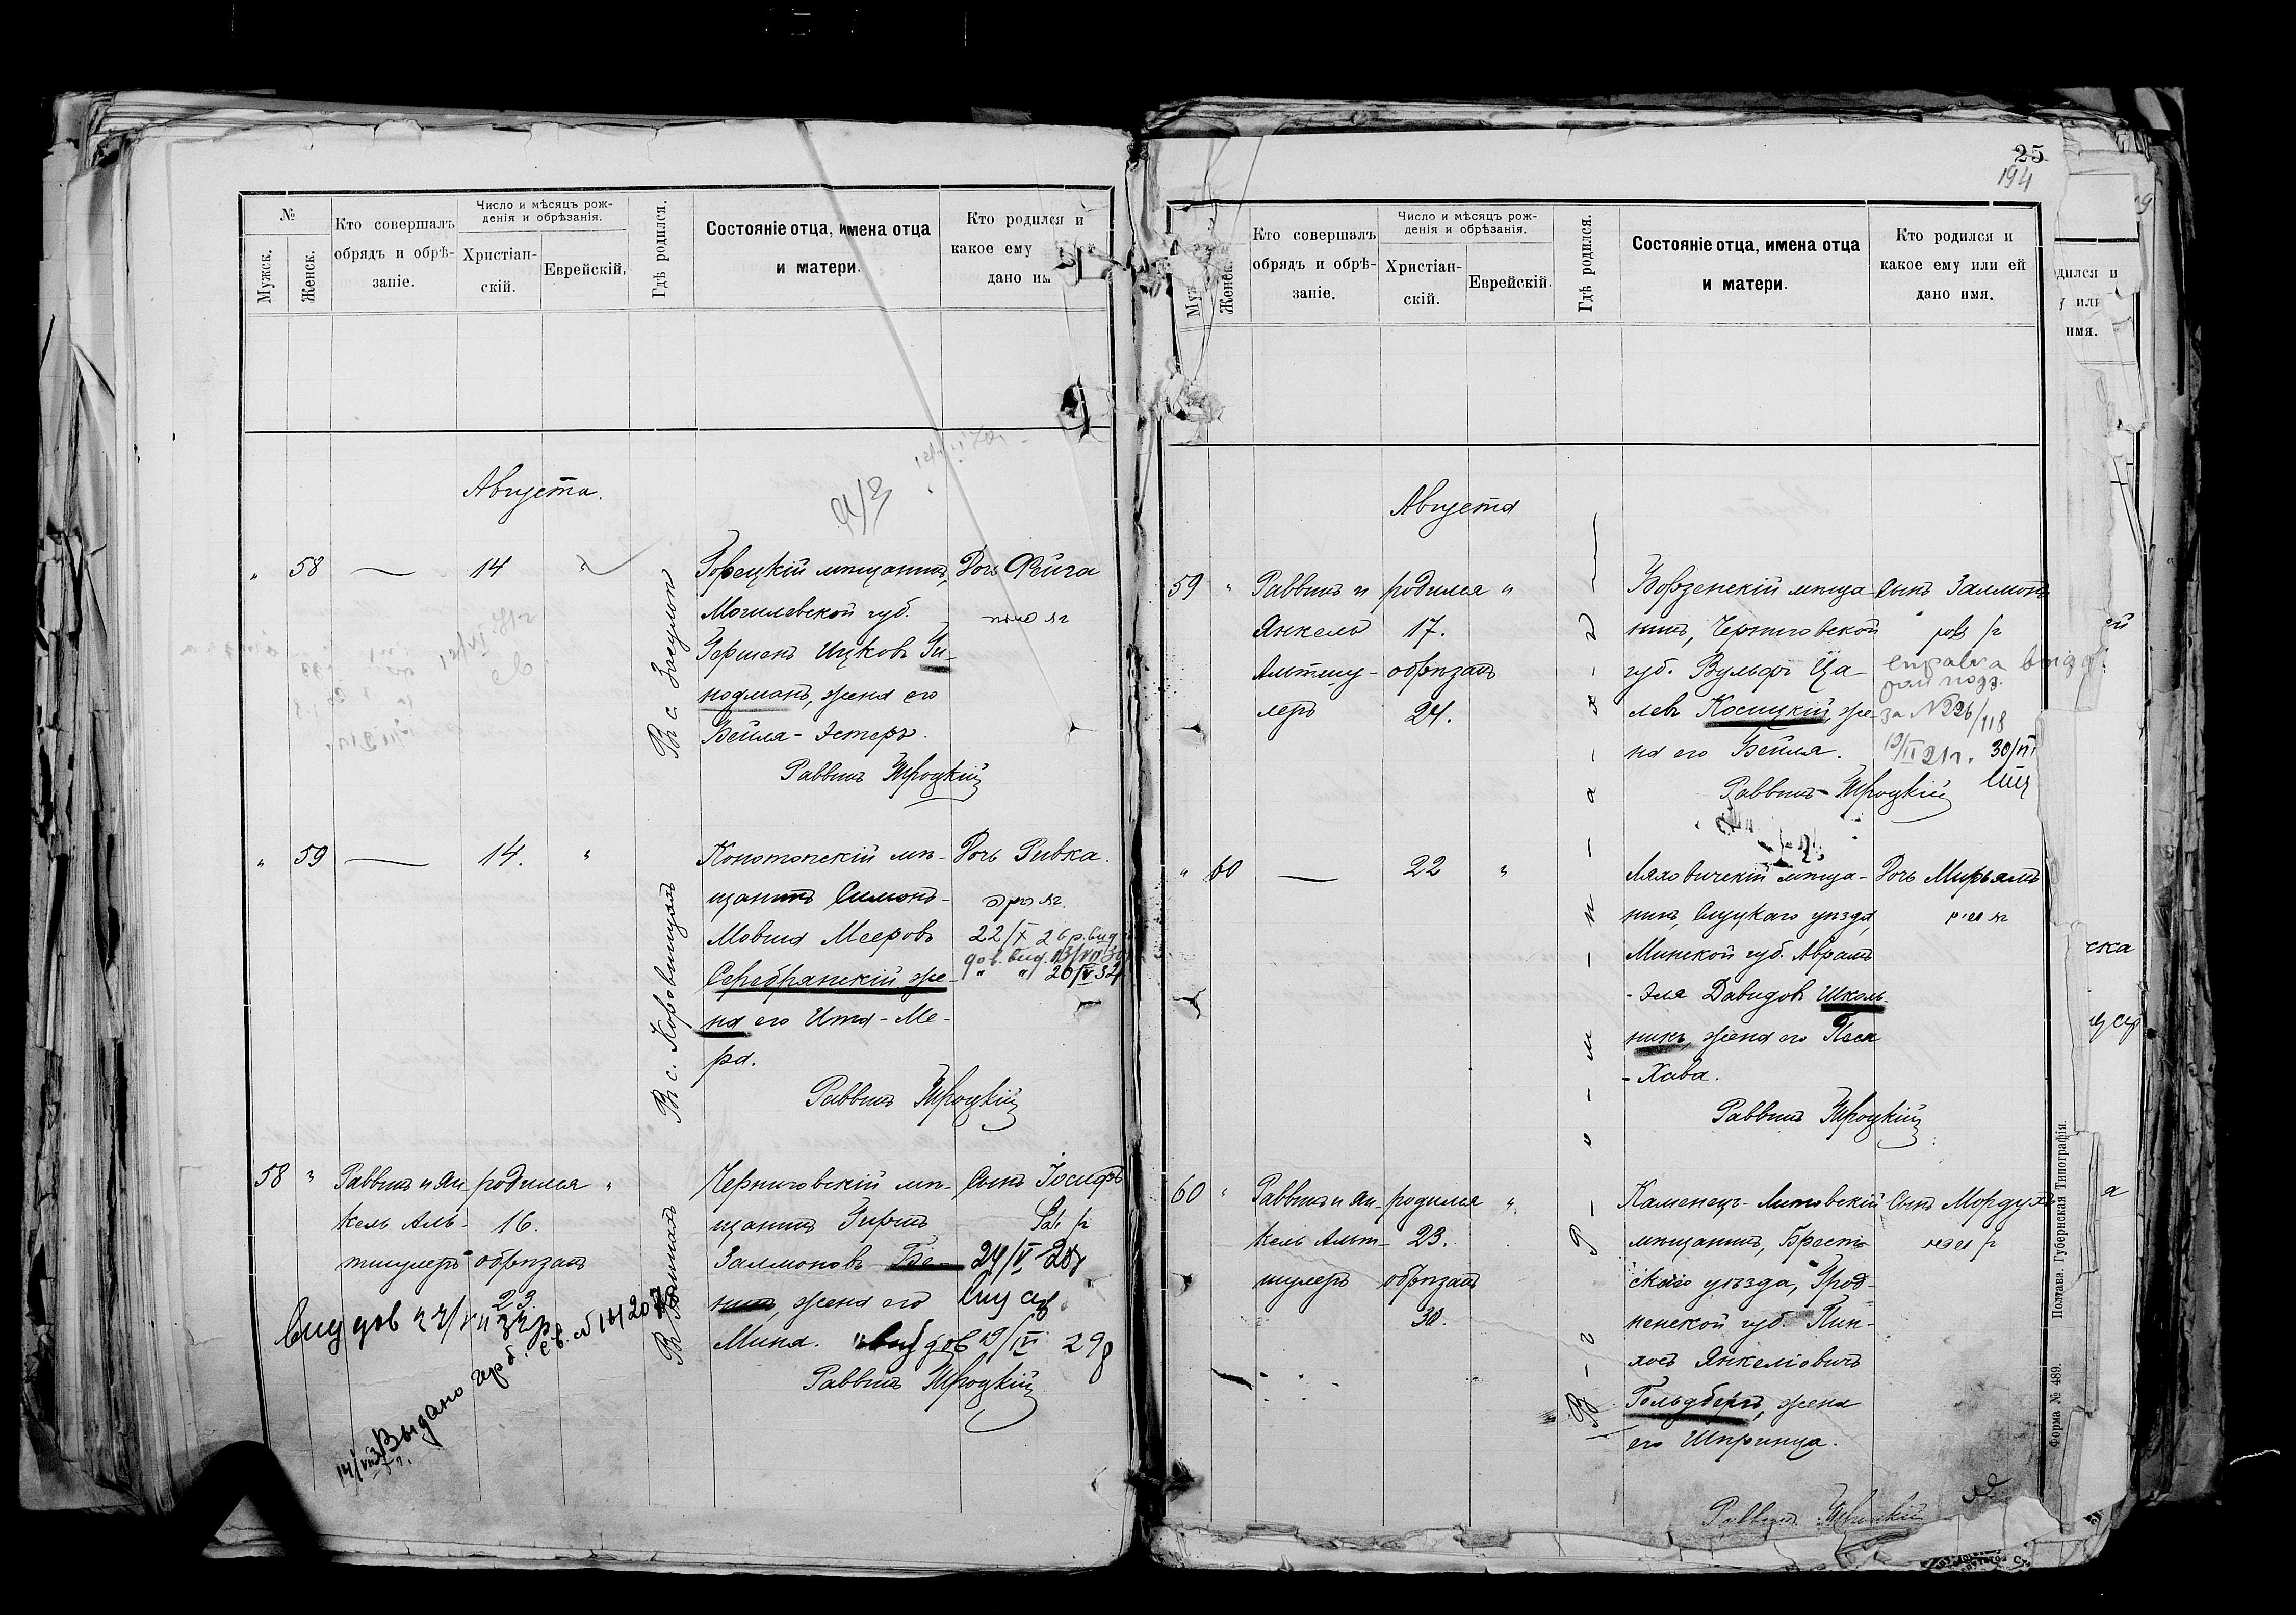 №
Мужск.
Женск.
Кто совершалъ
обрядъ и обрѣ-
заніе.
Число и мѣсяцъ рож-
денія и обрѣзанія.
Христіан-
скій.
Еврейскій.
Гдѣ родился.
Состояніе отца, имена отца
и матери.
Кто родился и
какое ему
дано
Августа.
" 58 — 14 "
Въ с.
Горецкій мѣщанинъ,
Могилевской губ.
Гершенъ Ицковъ Ги-
нодманъ, жена его
Бейля-Эстеръ.
Раввинъ Троцкій
Дочь Фейга
" 59 — 14. "
Въ с. Коровинцахъ
Конотопскій мѣ-
щанинъ Симонъ-
Мовша Мееровъ
Серебрянскій же-
на его Ита-Ме-
ра.
Раввинъ Троцкій
Дочь Ривка.
22/X 26 р. вид
дов. вид. 13/VII 30
" " 20/V 32
58 "
Раввинъ и Ян-
кель Аль-
тшулеръ
родился
16.
обрѣзанъ
23.
Черниговскій мѣ-
щанинъ Гиршъ
Залмоновъ
жена его
Мина.
Раввинъ Троцкій
Сынъ Іосифъ
24/V 28
вид дов
Выдано
25
194
Женск.
Кто совершалъ
обрядъ и обрѣ-
заніе.
Число и мѣсяцъ рож-
денія и обрѣзанія.
Христіан-
скій.
Еврейскій.
Гдѣ родился.
Состояніе отца, имена отца
и матери.
Кто родился и
какое ему или ей
дано имя.
Августа
59 "
Раввинъ и
Янкель
Альтшу-
леръ
родился "
17.
обрѣзанъ
24.
Борзенскій мѣща-
нинъ, Черниговской
губ. Вульфъ Ца-
левъ Косицкій, же-
на его Бейля.
Раввинъ Троцкій
Сынъ Залмонъ
за №226/118
" 60 — 22 "
Ляховичскій мѣща-
нинъ, Слуцкаго уѣзда,
Минской губ. Абрамъ
-Эля Давидовъ Школь-
никъ, жена его Песя
-Хава.
Раввинъ Троцкій
Дочь Мирьямъ
60 "
Раввинъ и Ян-
кель Альт-
шулеръ
родился "
23.
обрѣзанъ
30.
Каменецъ-Литовскій
мѣщанинъ, Брест-
скаго уѣзда, Грод-
ненской губ. Пин-
хосъ Янкеліовичъ
Гольдбергъ, жена
его Шпринца.
Раввинъ Троцкій
Сынъ Мордухъ
Форма № 489. Полтава. Губернская Типографія.